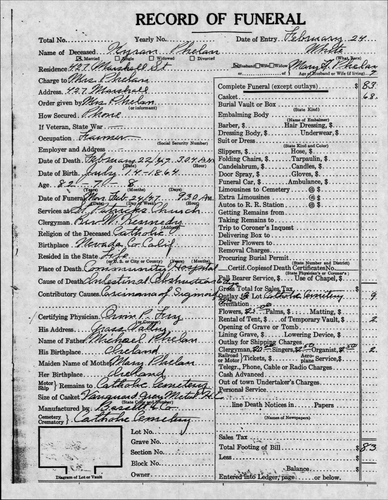 RECORD OF FUNERAL
Total No. Yearly No. Date of Entry February 24
Name of Deceased Myron Phelan White
Married Single Widowed Divorced
Residence 427 Marshall St Husband or Wife Mary F. Phelan
Charge to Mrs Phelan
Address 427 Marshall
Order given by Mrs Phelan
How Secured Phone
If Veteran, State War
Occupation Farmer
Employer and Address
Date of Death February 22/47 3:04 A.m
Date of Birth July 14-1864
Age 82 - 7 - 8
Date of Funeral Mon Feb 24/47 9:30 Am
Services at St Patricks Church
Clergyman Rev. Kennedy
Religion of the Deceased Catholic
Birthplace Nevada Co. Calif.
Resided in the State Life
Place of Death Community Hospital
Cause of Death Intestinal Obstruction
Contributory Causes Carcinoma of Sigmoid
Certifying Physician
His Address Grass Valley
Name of Father Michael Phelan
His Birthplace Ireland
Maiden Name of Mother Mary Phelan
Her Birthplace Ireland
Motor Ship Remains to Catholic Cemetery
Size of Casket Vanguard Grey Metal
Manufactured by Bassett & Co
Cemetery Crematory Catholic Cemetery
Lot No.
Grave No.
Section No.
Block No.
Owner
Diagram of Lot or Vault
Complete Funeral (except outlays) $ 83
Casket 68.
Burial Vault or Box
(State Kind)
Embalming Body
Barber, $ Hair Dressing, $
Dressing Body, $ Underwear, $
Suit or Dress
(State Kind and Color)
Slippers, $ Hose, $
Folding Chairs, $ Tarpaulin, $
Candelabrum, $ Candles, $
Door Spray, $ Gloves, $
Funeral Car, $ Ambulance, $
Limousines to Cemetery @ $
Extra Limousines @ $
Autos to R. R. Station @ $
Getting Remains from
Taking Remains to
Trip to Coroner's Inquest
Delivering Box to
Deliver Flowers to
Removal Charges
Procuring Burial Permit
(State Number and District)
Certif. Copies Death Certificate No.
(State Physician's or Coroner's)
Pall Bearer Service, $ Use of Chapel, $
Gross Total for Sales Tax
Outlay for Lot Catholic Cemetery 9
Flowers, $ Palms, $ Matting, $
Rental of Tent, $ of Temporary Vault, $ 2
Opening of Grave or Tomb
Lining Grave, $ Lowering Device, $
Outlay for Shipping Charges
Clergyman, $ Singers, $ Organist, $ 2
Railroad or Motor Tickets, $ Aero Service, $
Telegr., Phone, Cable or Radio Charges
Cash Advanced
Out of town Undertaker's Charges
Personal Service
line Death Notices in Papers
(Names of Newspapers)
Sales Tax
Total Footing of Bill $ 83
Less
Balance
Entered into Ledger, page or below.